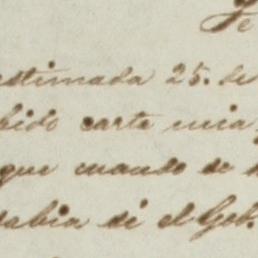 estimada 25. de
bido carta mia
que cuando se
sabia de el Gob.